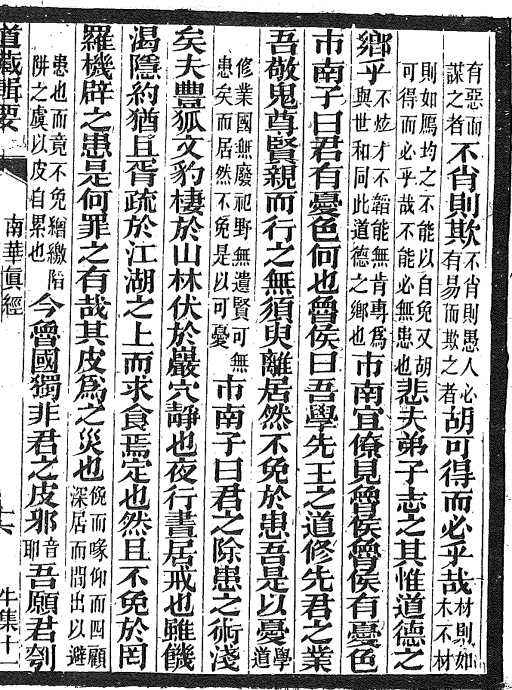 有惡而謀之者不肖則欺不肖則愚人必有易而欺之者胡可得而必乎哉材則如木不材
則如鴈均之不能以自免又胡可得而必乎哉不能必無患也悲夫弟子志之其惟道德之
鄉乎不炫才不韜能無肯專爲與世和同此道德之鄉也市南宜僚見魯侯魯侯有憂色
市南子曰君有憂色何也魯侯曰吾學先王之道修先君之業
吾敬鬼尊賢親而行之無須臾離居然不免於患吾是以憂學道
修業國無廢祀野無遺賢可無患矣而居然不免是以可憂市南子曰君之除患之術淺
矣夫豐狐文豹棲於山林伏於巖穴靜也夜行晝居戒也雖饑
渴隱約猶且胥疏於江湖之上而求食焉定也然且不免於罔
羅機辟之患是何罪之有哉其皮爲之災也俛而喙仰而四顧深居而間出以避
患也而竟不免繒繳陷阱之虞以皮自累也今魯國獨非君之皮邪音耶吾願君刳
道藏輯要 南華眞經 牛集十一